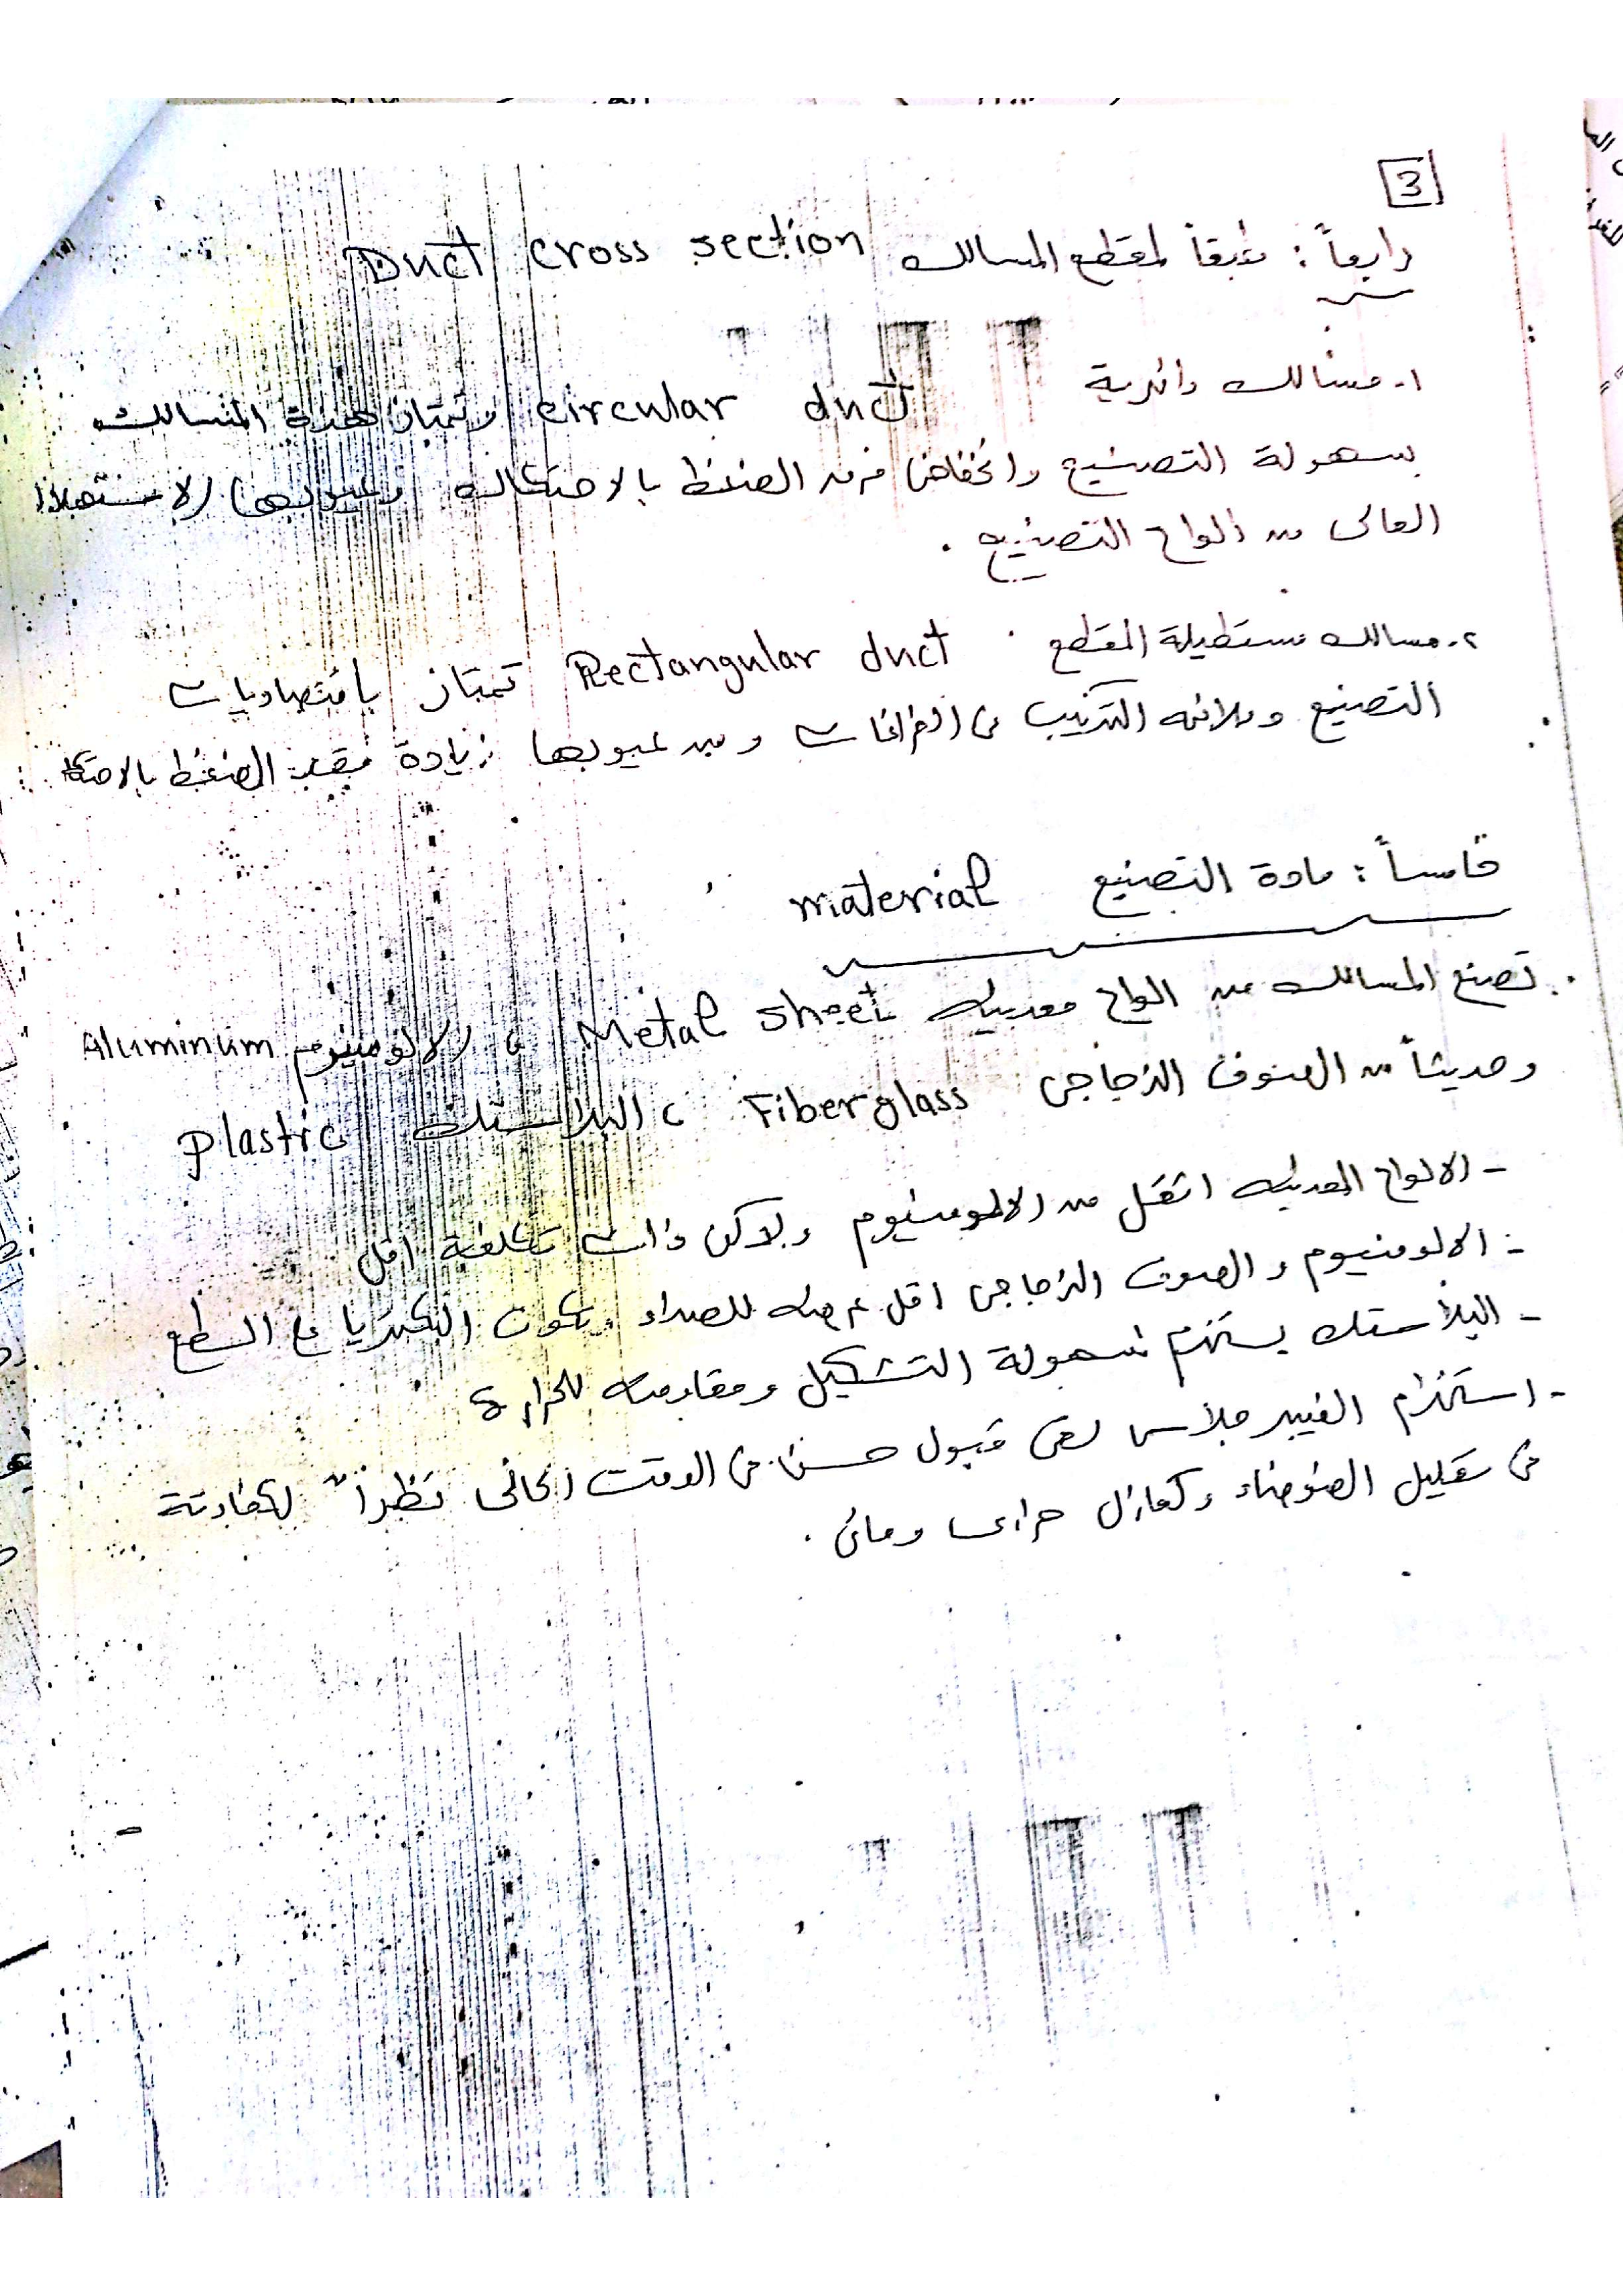 3
رابعاً : طبقاً لمقطع المسالك Duct cross section
١- مسالك دائرية circular duct وتمتاز هذة المسالك
بسهولة التصنيع وانخفاض فرق الضغط بالاحتكاك وعيوبها الاستهلاك
العالى من الواح التصنيع .
٢- مسالك مستطيلة المقطع Rectangular duct تمتاز باقتصاديات
التصنيع وملائمه التركيب فى الفراغات ومن عيوبها زيادة فقد الضغط بالاحتكا
خامساً : مادة التصنيع material
تصنع المسالك من الواح معدنيه Metal sheet ، الالومنيوم Aluminum
وحديثاً من الصوف الزجاجى Fiberglass ، البلاستك Plastic
- الالواح المعدنيه اثقل من الالومنيوم ولاكن ذات تكلفة اقل
- الالومنيوم و الصوف الزجاجى اقل عرضه للصداء وتكون البكتريا على السطح
- البلاستك يستخدم لسهولة التشكيل ومقاومته للحرارة
- استخدام الفيبر جلاس لقى قبول حسن فى الوقت الحالى نظراً لكفاءتة
فى تقليل الضوضاء وكعازل حرارى ومائى .